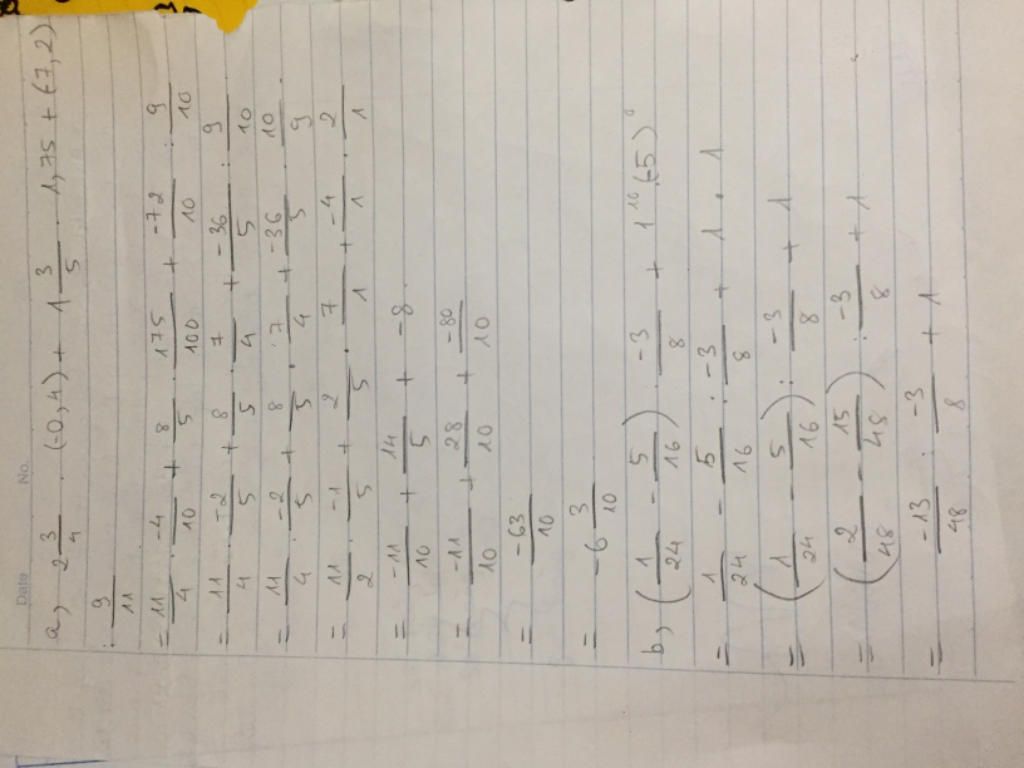 Date No.
a, 2 3/4 . (-0,4) + 1 3/5 . 1,75 + (-7,2)
: 9/11
= 11/4 . -4/10 + 8/5 . 175/100 + -72/10 : 9/10
= 11/4 . -2/5 + 8/5 . 7/4 + -36/5 : 9/10
= 11/4 . -2/5 + 8/5 . 7/4 + -36/5 . 10/9
= 11/2 . -1/5 + 2/5 . 7/1 + -4/1 . 2/1
= -11/10 + 14/5 + -8
= -11/10 + 28/10 + -80/10
= -63/10
= -6 3/10
b, (1/24 - 5/16) : -3/8 + 1^10 . (-5)^0
= 1/24 - 5/16 : -3/8 + 1 . 1
= (1/24 - 5/16) : -3/8 + 1
= (2/48 - 15/48) : -3/8 + 1
= -13/48 : -3/8 + 1